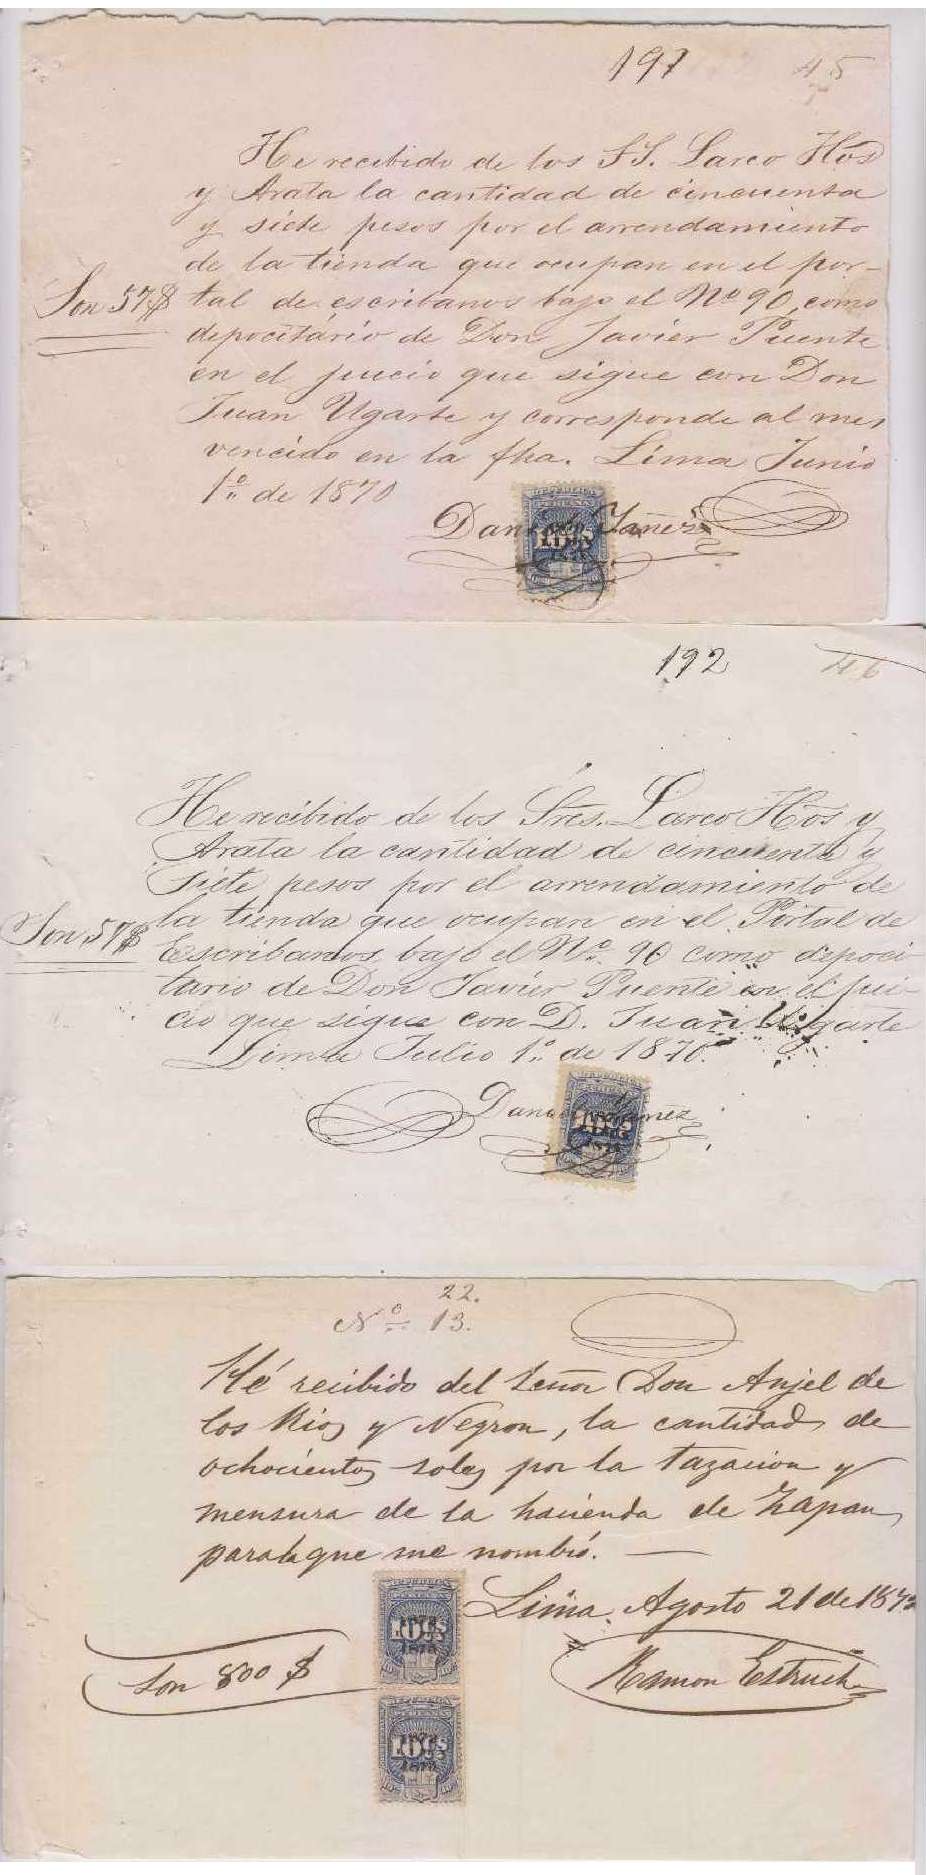 197 45
He recibido de los SS. Larco Hos
y Arata la cantidad de cincuenta
y siete pesos por el arrendamiento
de la tienda que ocupan en el por-
Son 57$ tal de escribanos bajo el No 90, como
depocitário de Don Javier Puente
en el juicio que sigue con Don
Juan Ugarte y corresponde al mes
vencido en la fha. Lima Junio
1o de 1870
Yañez
192 46
He recibido de los Sres. Larco Hos y
Arata la cantidad de cincuenta y
siete pesos por el arrendamiento de
la tienda que ocupan en el Portal de
Son 57$ Escribanos, bajo el No. 90 como depoci
tario de Don Javier Puente en el jui-
cio que sigue con D. Juan Ugarte
Lima Julio 1o de 1870.
22.
No 13.
Hé recibido del Señor Don Anjel de
los Rios y Negron, la cantidad de
ochocientos soles por la tazacion y
mensura de la hacienda de Zapan,
para la que me nombró. —
Lima, Agosto 21 de
Son 800 $
Ramon Estruch